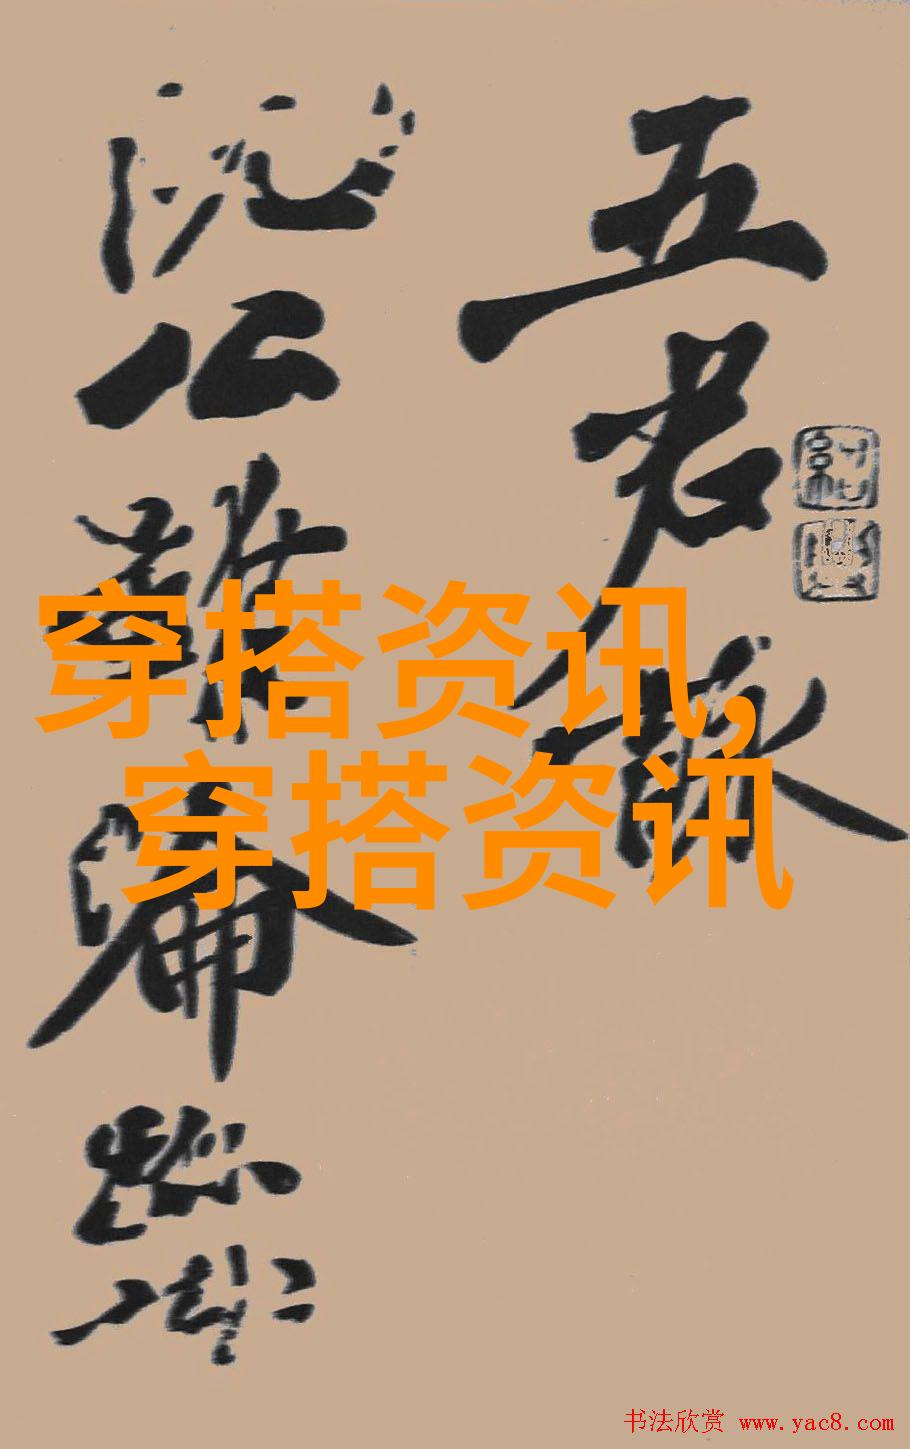 五君詠
阮公雖淪跡
穿搭资讯,
穿搭资讯
书法欣赏 www.yac8.com